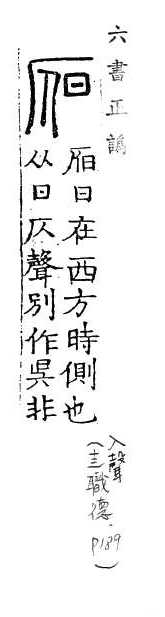 六書正譌
日在西方時側也
从日仄聲別作吳非
入聲
(職德·P189)